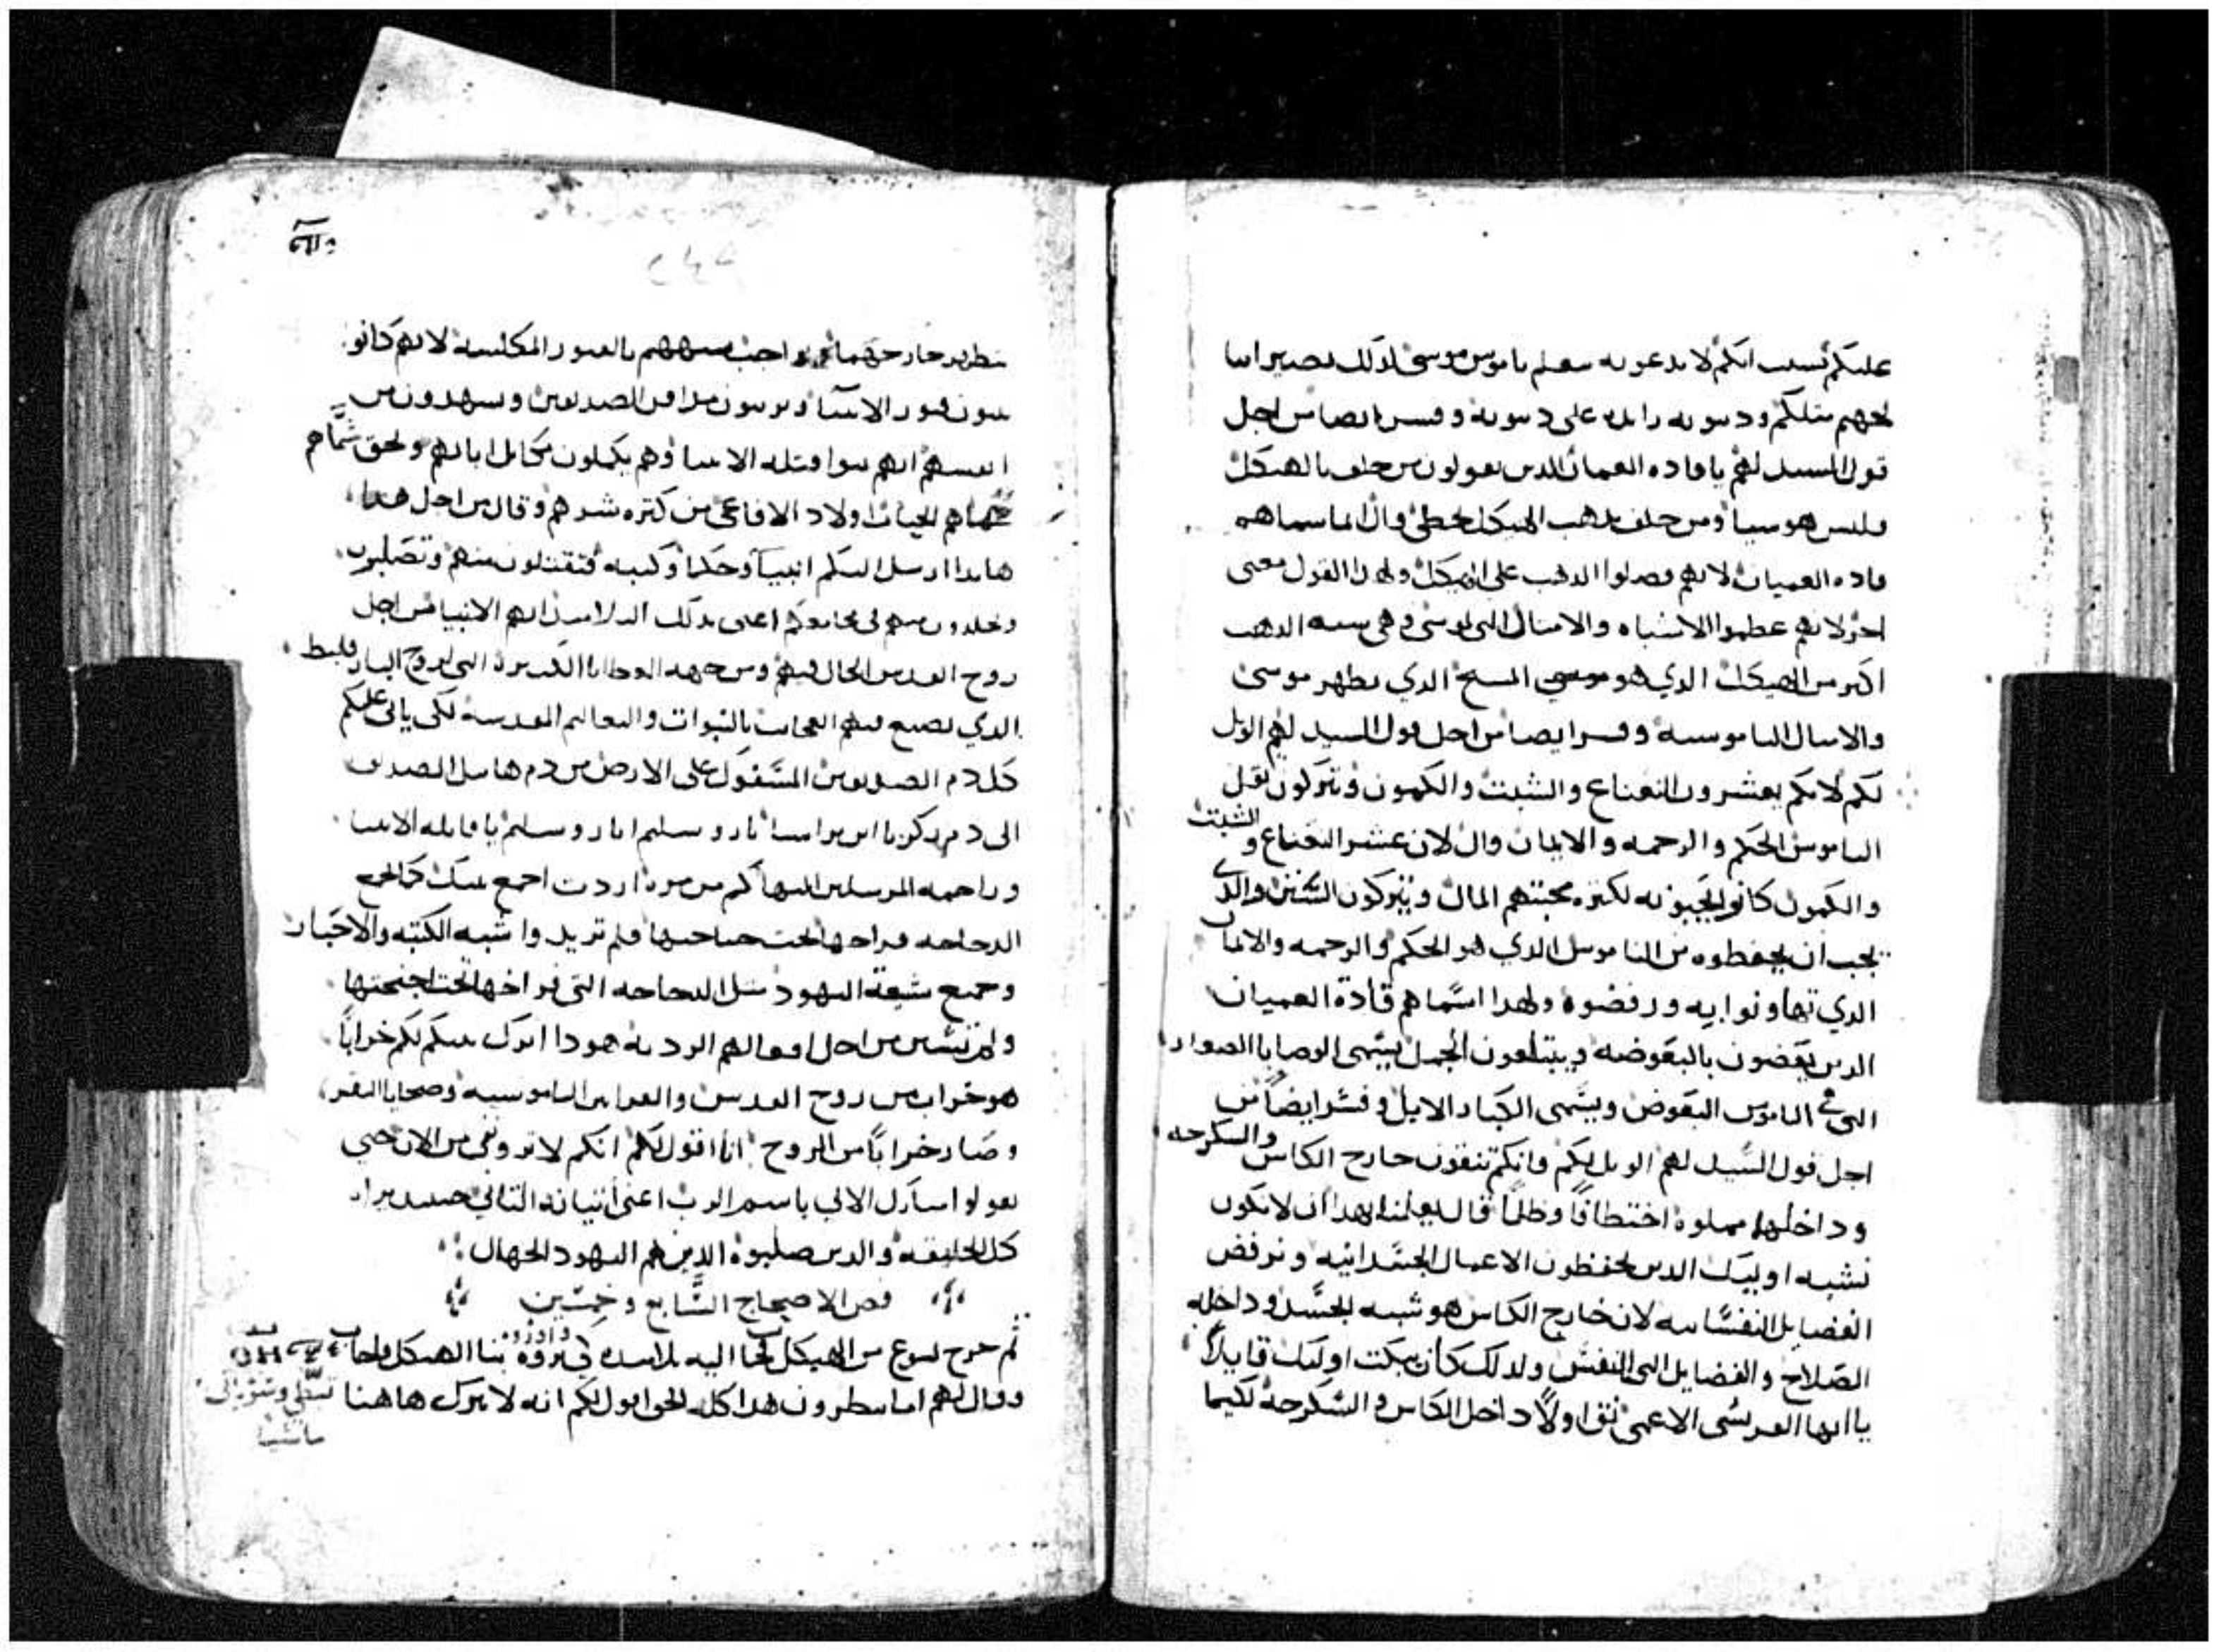 عليكم بسبب انكم لا تدعونه يتعلم ناموس موسى لدلك يصير ابنا
لجهنم مثلكم ودينونه زايده على دينونه وفسر ايضا من اجل
قول السيد لهم يا قاده العميان الدين يقولون من حلف بالهيكل
فليس هو شيا ومن حلف بدهب الهيكل يخطى وقال انما سماهم
قاده العميان لانهم فضلوا الدهب على الهيكل ولهدا القول معنى
اخر لانهم عظموا الاشباه والامثال التى لموسى وهى شبه الدهب
اكتر من الهيكل الدي هو المسيح الدي يطهر موسى
والامثال الناموسيه وفسر ايضا من اجل قول السيد لهم الويل
لكم لانكم تعشرون النعناع والشبت والكمون وتتركون ثقل
الناموس الحكم والرحمه والايمان وقال لان عشر النعناع والشبت
والكمون كانوا يجبونه لكتره محبتهم المال ويتركون والدي
يجب ان يحفظوه من الناموس الدي هو الحكم والرحمه والايمان
الدي تهاونوا به ورفضوه ولهدا اسماهم قادة العميان
الدين يغصون بالبعوضه ويبتلعون الجمل يسمى الوصايا الصغار
التى فى الناموس البعوض ويسمى الكبار الابل وفسر ايضا من
اجل قول السيد لهم الويل لكم وانكم تنقون خارج الكاس والسكرجه
وداخلها مملوه اختطافا وظلما قال يعلمنا بهدا ان لا نكون
نشبه اوليك الدين يحفظون الاعمال الجسدانيه ونرفض
الفضايل النفسانيه لان خارج الكاس هو شبه الجسد وداخله
الصلاح والفضايل التى للنفس ولدلك كان يبكت اوليك قايلا
يا ايها الفريسى الاعمى نق اولا داخل الكاس والسكرجه لكيما
يتطهر خارجهما واجب يشبههم بالقبور المكلسه لانهم كانوا
يبنون قبور الانبيا ويزينون مدافن الصديقين ويشهدون من
انفسهم انهم بنوا قتله الانبيا وهم يكملون مكايل ابايهم وبحق سماهم
الحيات اولاد الافاعى من كتره شرهم وقال من اجل هدا
هاندا ارسل اليكم انبيا وحكما وكتبه فتقتلون منهم وتصلبون
وتجلدون منهم فى مجامعكم اعنى بدلك التلاميد انهم الانبيا من اجل
روح القدس الحال فيهم ومن جهه العطايا الكتيرة التى لروح البارقليط
الدي يصنع فيهم العجايب بالنبوات والتعاليم المقدسه لكى ياتى عليكم
كل دم الصديقين المسفوك على الارض من دم هابيل الصديق
الى دم زكريا ابن براشيا يا يروشليم يا يروشليم يا قاتله الانبيا
وراجمه المرسلين اليها كم من مره اردت اجمع بنيك كما تجمع
الدجاجه فراخها تحت جناحيها فلم تريدوا شبه الكتبه والاحبار
وجميع شيعة اليهود متل الدجاجه التى فراخها تحت اجنحتها
من اجل افعالهم الرديه هودا اترك بيتكم لكم خرابا
هو خراب من روح القدس والقرابين الناموسيه وضحايا البقر
وصار خرابا من الروح انا اقول لكم انكم لا ترونى من الان حتى
تقولوا مبارك الاتى باسم الرب اعنى اتيانه التانى حينيد يراه
كل الخليقه والدين صلبوه الدين هم اليهود الجهال
فص الاصحاح السابع وخمسين
تم خرج يسوع من الهيكل فجا اليه تلاميده وادروه بنا الهيكل فاجاب
وقال لهم اما تنظرون هدا كله الحق اقول لكم انه لا يترك هاهنا